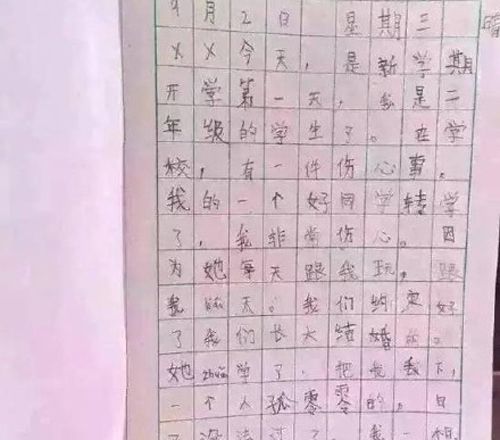 9月2日 星期三 晴
××今天，是新学期
开学第一天，我是二
年级的学生了。在学
校，有一件伤心事。
我的一个好同学转学
了，我非常伤心。因
为她每天跟我玩，跟
我聊天。我们约定好
了我们长大结婚的。
她zhuǎn学了，把我丢下，
一个人孤零零的，日
子没法过了。我一想